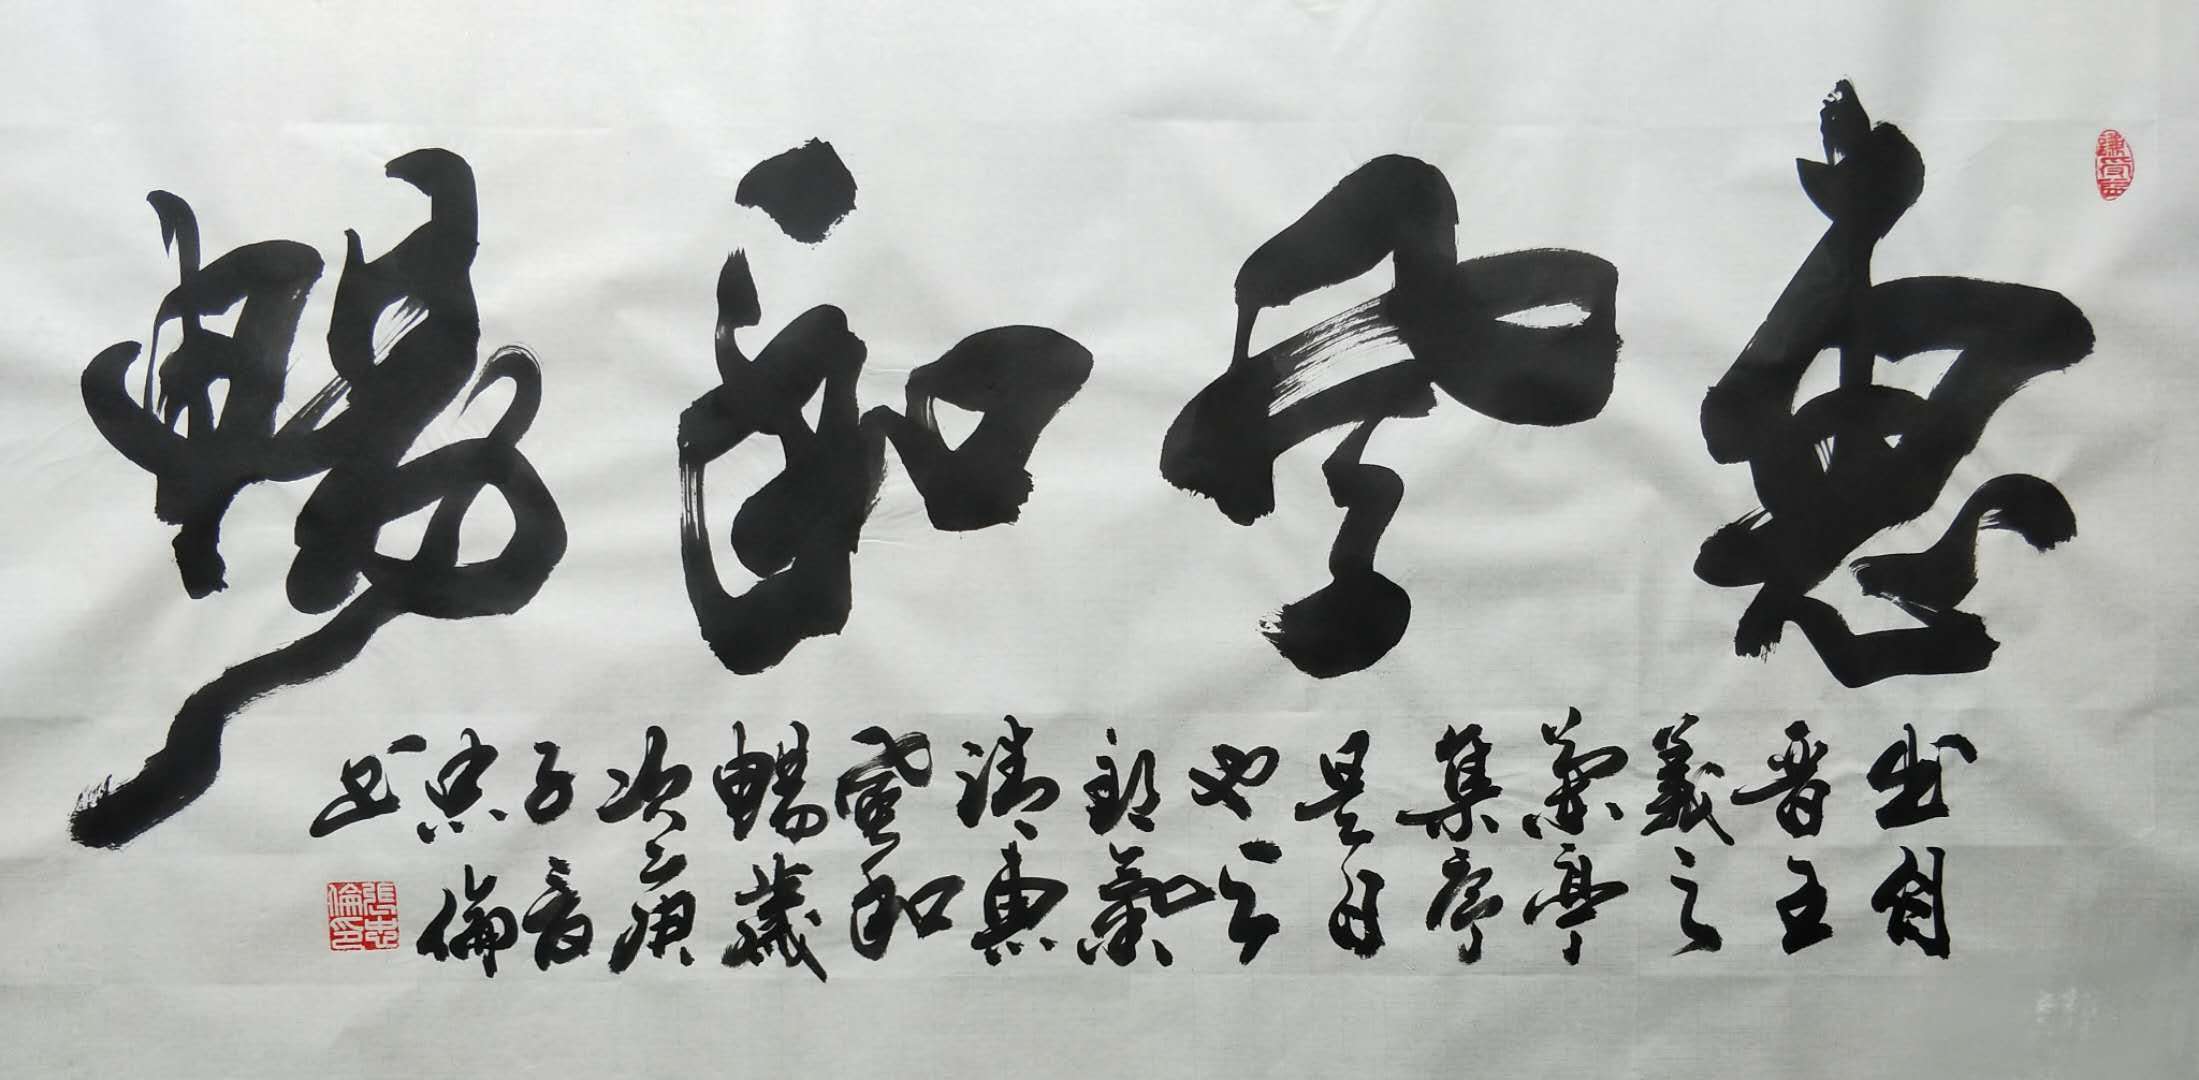 惠風和暢
出自
晋王
羲之
蘭亭
集序
是日
也天
朗氣
清惠
風和
暢歲
次庚
子夏
忠倫
书
謙受益
張忠倫印